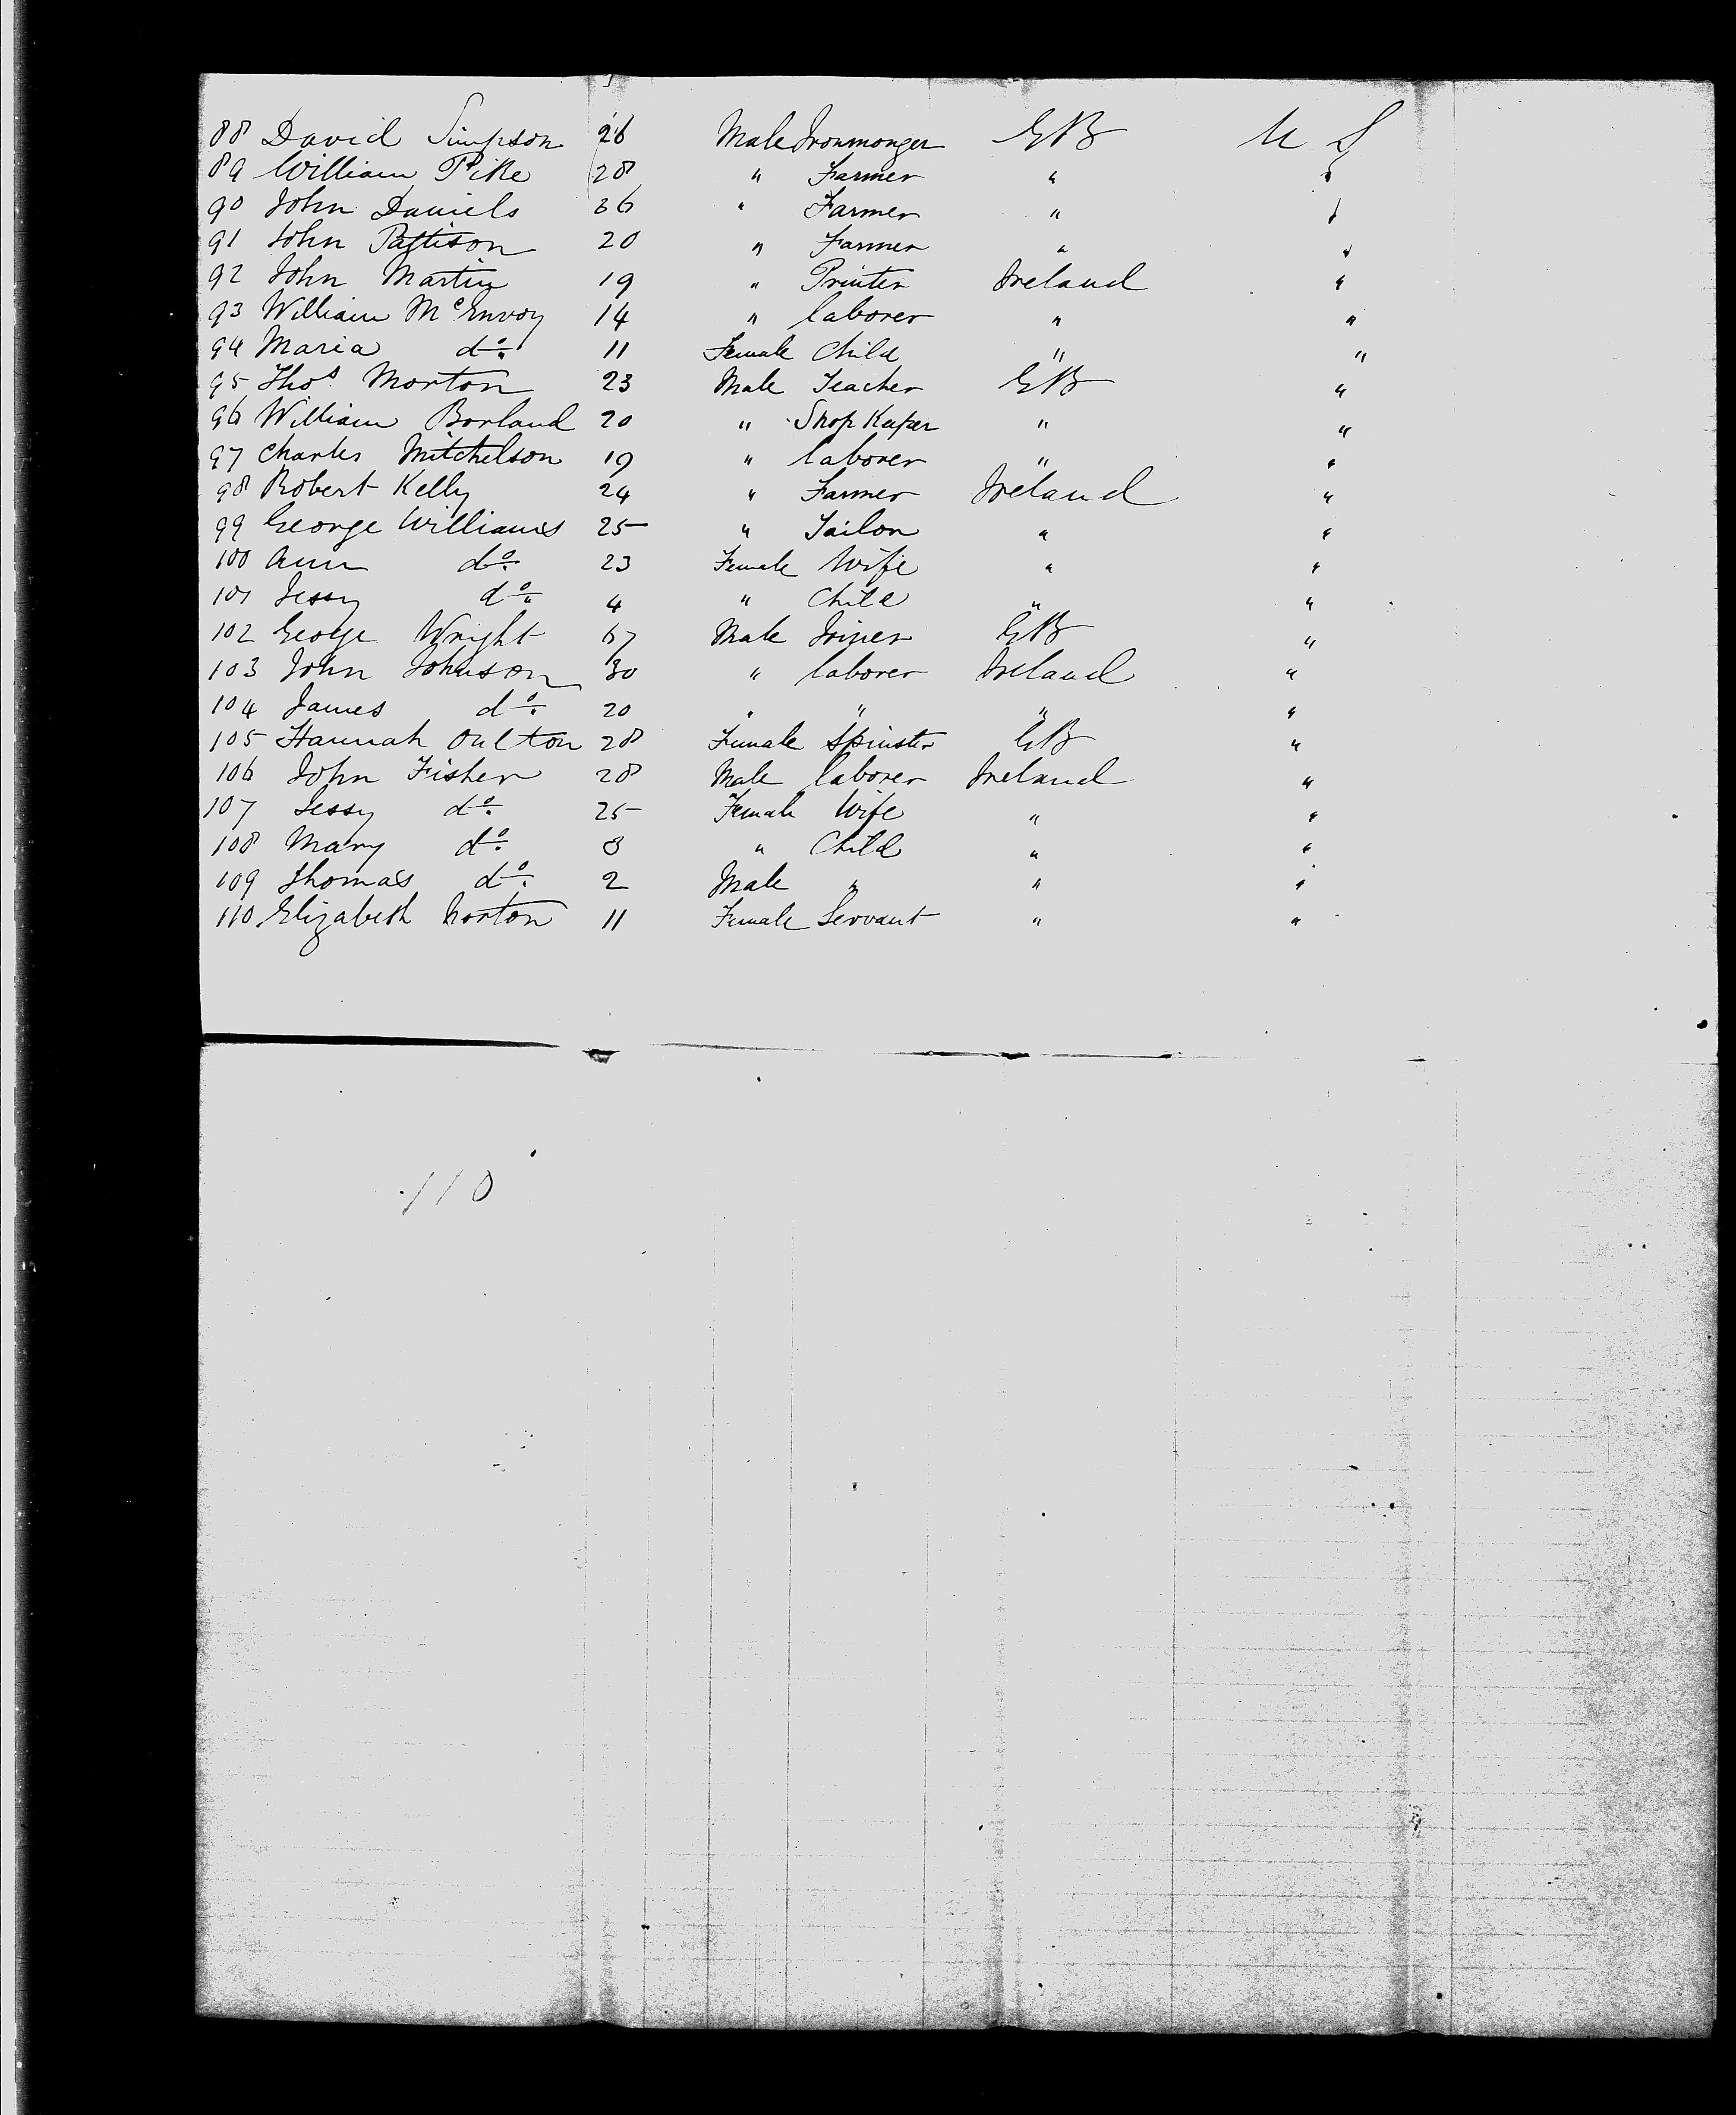 88 David Simpson 26 Male Ironmonger GB U S
89 William Pike 28 " Farmer " "
90 John Daniels 36 " Farmer " "
91 John Pattison 20 " Farmer " "
92 John Martin 19 " Printer Ireland "
93 William McEnvoy 14 " laborer " "
94 Maria do 11 Female Child " "
95 Thos Morton 23 Male Teacher GB "
96 William Borland 20 " Shop Keeper " "
97 Charles Mitchelson 19 " laborer " "
98 Robert Kelly 24 " Farmer Ireland "
99 George Williams 25 " Tailor " "
100 Ann do 23 Female Wife " "
101 Jessy do 4 " Child " "
102 George Wright 67 Male Joiner GB "
103 John Johnson 30 " laborer Ireland "
104 James do 20 " " " "
105 Hannah Oulton 28 Female Spinster GB "
106 John Fisher 28 Male laborer Ireland "
107 Jessy do 25 Female Wife " "
108 Mary do 3 " Child " "
109 Thomas do 2 Male " " "
110 Elizabeth Norton 11 Female Servant " "
110